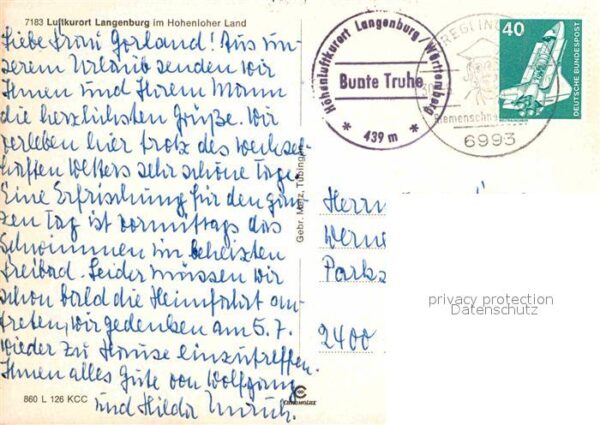 7183 Luftkurort Langenburg im Hohenloher Land
Liebe Frau Gorland! Aus un-
serem Urlaub senden wir
Ihnen und Ihrem Mann
die herzlichsten Grüße. Wir
verleben hier trotz des wechsel-
haften Wetters sehr schöne Tage.
Eine Erfrischung für den gan-
zen Tag ist vormittags das
Schwimmen im beheizten
Freibad. Leider müssen wir
schon bald die Heimfahrt an-
treten, wir gedenken am 5.7.
wieder zu Hause einzutreffen.
Ihnen alles Gute von Wolfgang
und Hilda
860 L 126 KCC
Gebr. Metz, Tübingen
Höhenluftkurort Langenburg/Württemberg
Bunte Truhe
* 439 m *
6993
40
DEUTSCHE BUNDESPOST
Herrn
Werne
Parks
2400
privacy protection
Datenschutz